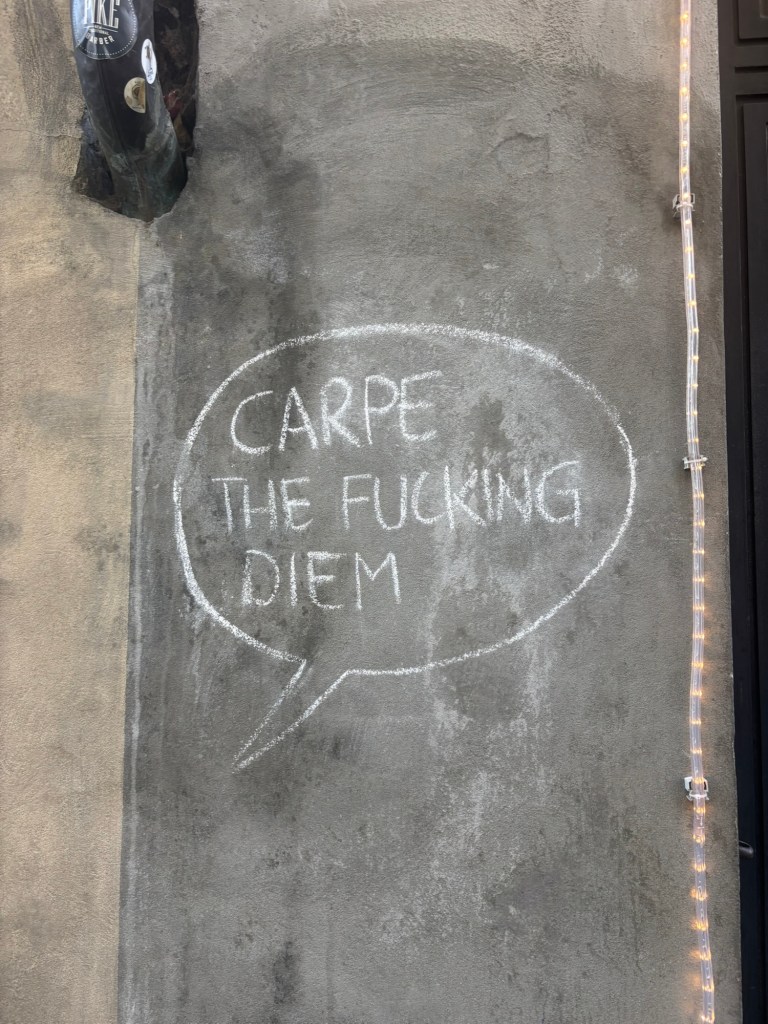 CARPE
THE FUCKING
DIEM